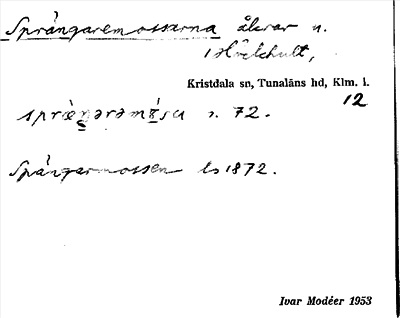 Språngaremossarna åkrar n.
i Hökhult,
Kristdala sn, Tunaläns hd, Klm. l.
12
n. 72.
Spångarmossen ls 1872.
Ivar Modéer 1953